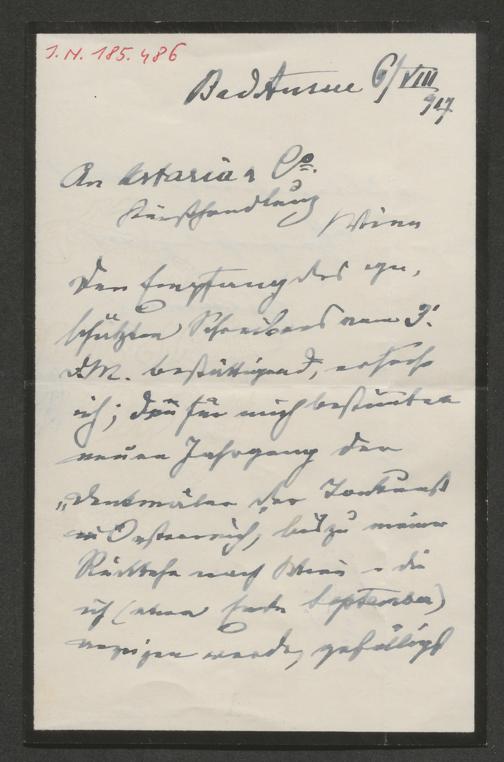 I. N. 185.486
Bad Aussee 6/VIII
917.
An Artaria & Co.
Kunsthandlung
Wien
Den Empfang des ge-
schätzten Schreibens vom 3.
d. M. bestätigend, ersuche
ich, den für mich bestimten
neuen Jahrgang der
„Denkmäler der Tonkunst
in Österreich, bis zu meiner
Rückkehr nach Wien – die
ich (etwa Ende September)
anzeigen werde, gefälligst